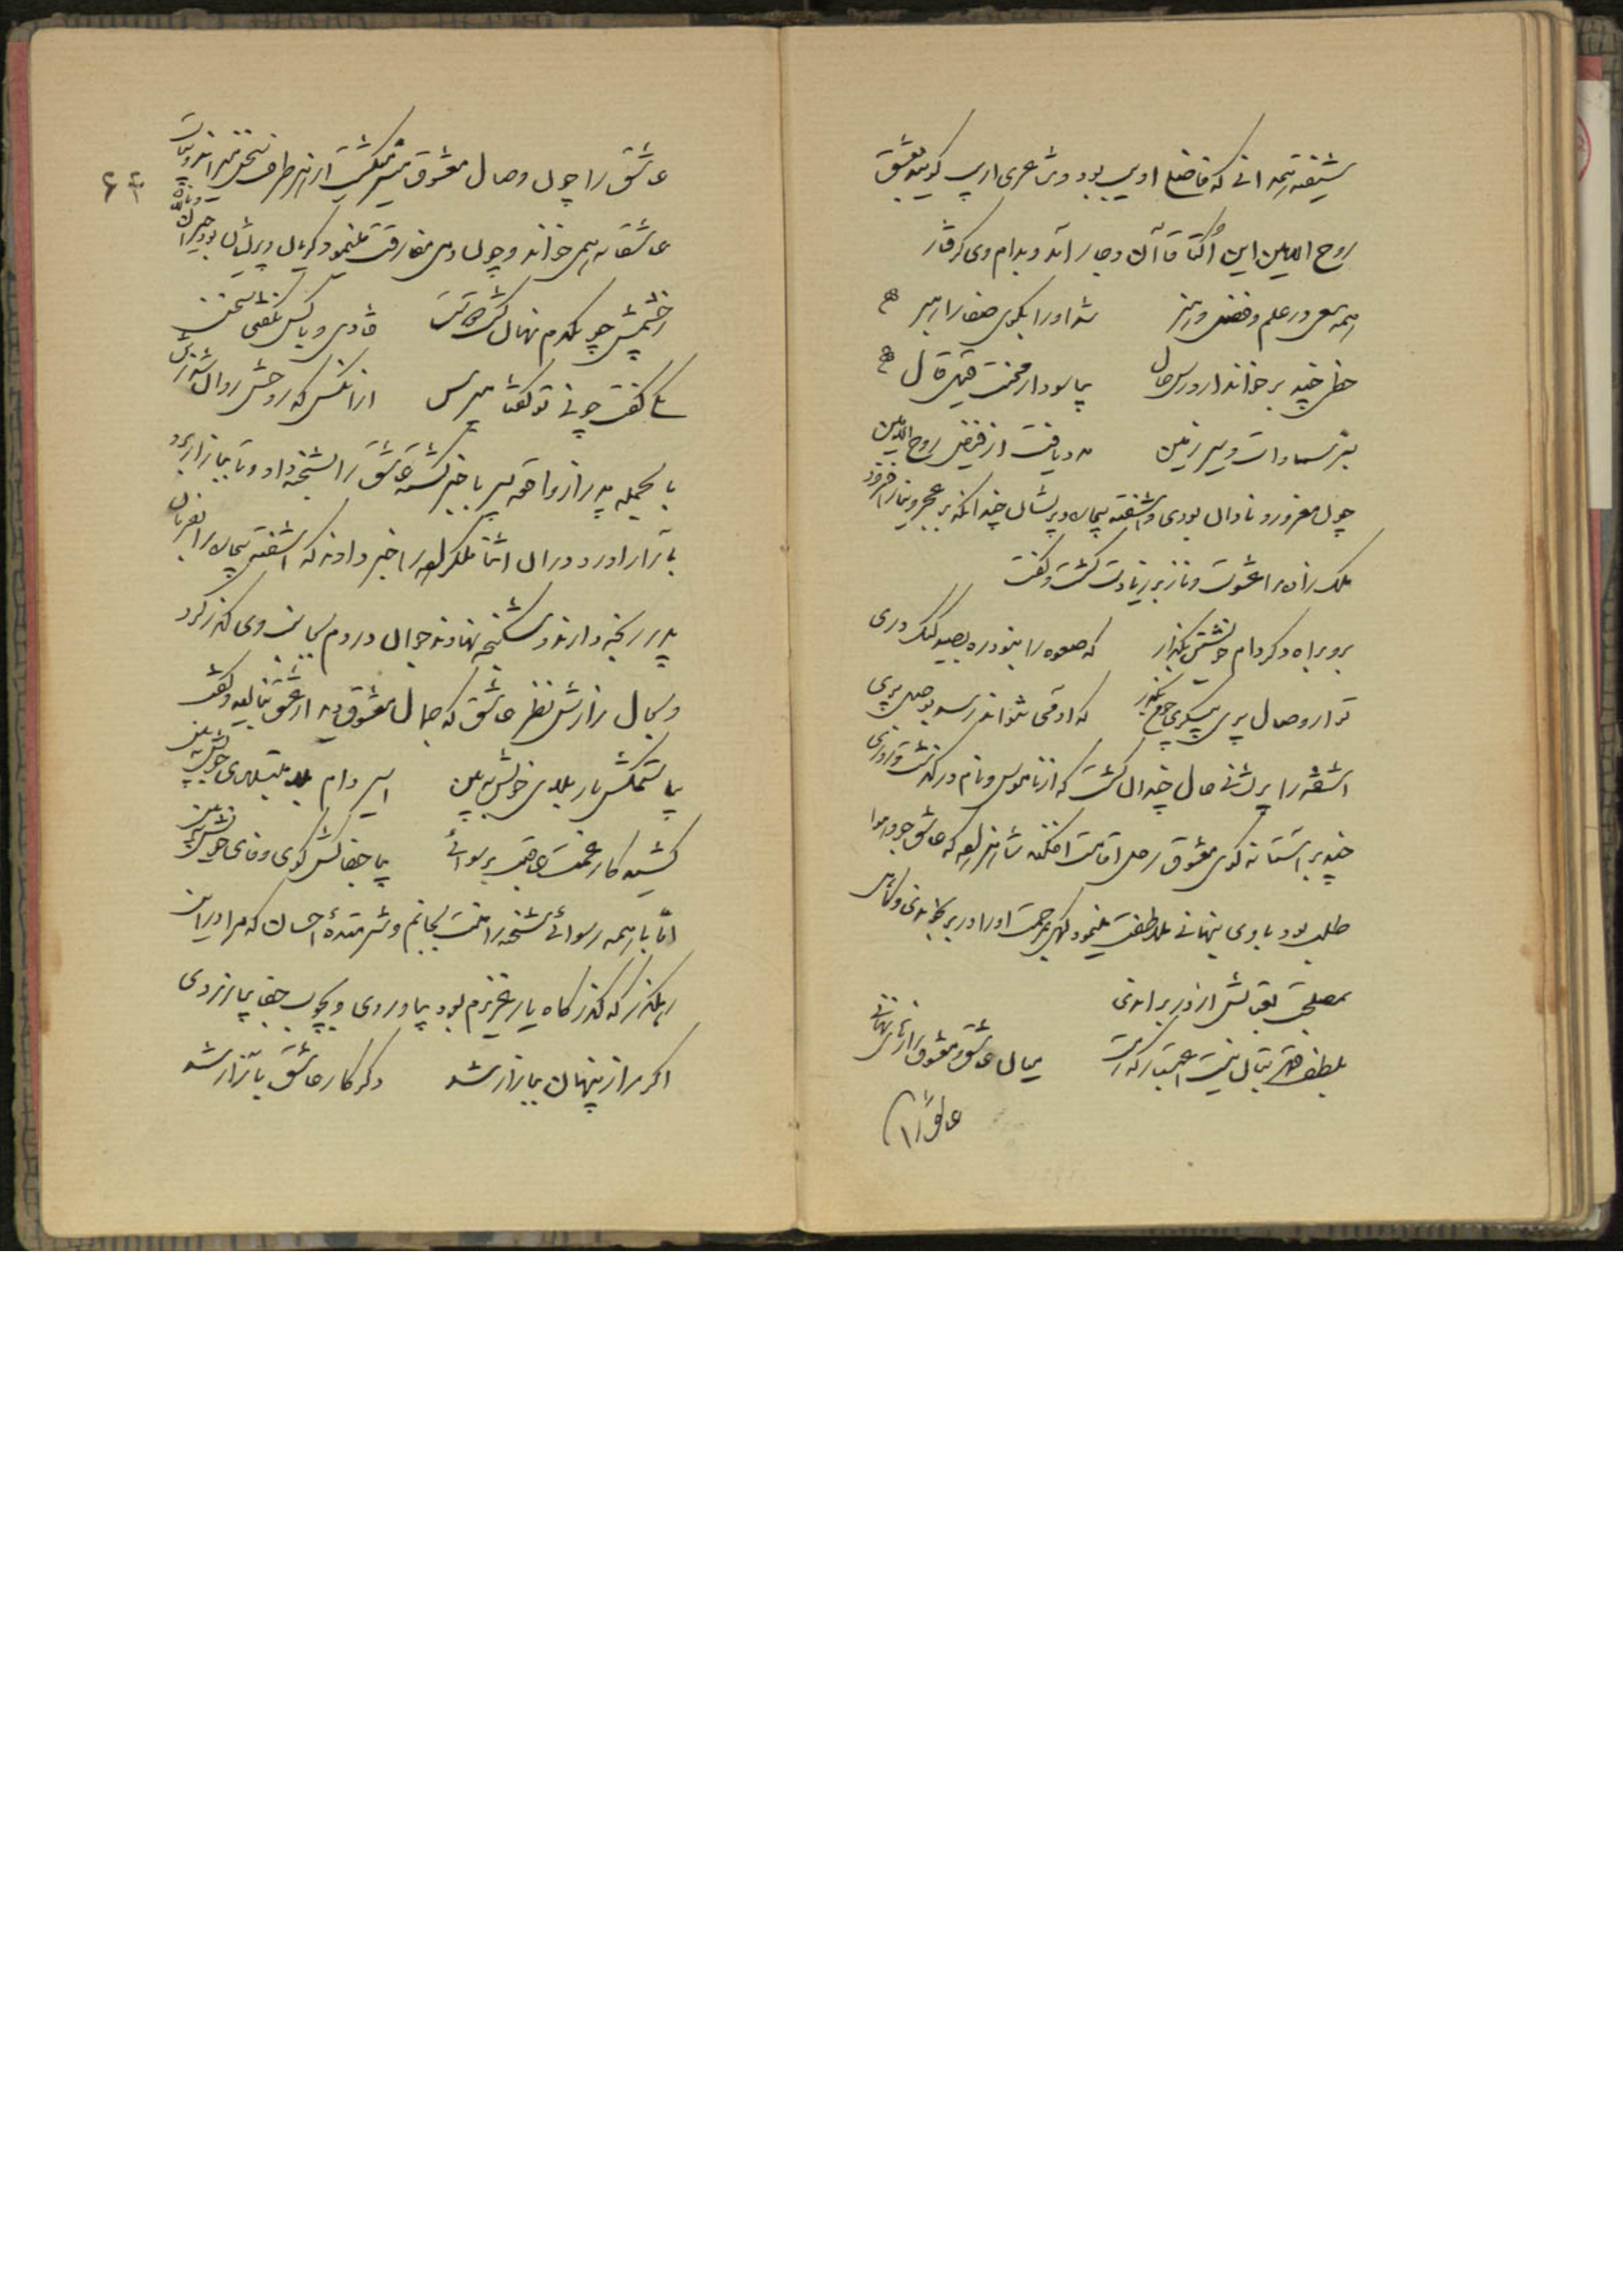 شیفته همدانی که فاضلی ادیب بود و شاعری اریب گویند بعشق
روح الامین این اُلتا قاآن دچار آمد و بدام وی گرفتار
همه سعی در علم و فضل و هنر شد او را بکوی صفا راهبر
خطی چند بر خواند از درس حال بپاسود از محنت قیل و قال
بسر سموات و سیر زمین مدد یافت از فیض روح الامین
چون مغرور و نادان بودی و آشفته بیچاره و پریشان چندانکه بر عجز و نیاز افزود
ملک زاده را عشوت و ناز بر زیادت گشت و گفت
برو براه دگر دام خویشتن بگذار که صعوه را نبود ره بصید کبک دری
ترا وصال پری پیکری چو من که آدمی نتواند رسد بوصل پری
آشفته را پریشانی حال چندان گشت که از ناموس و نام درگذشت و روزی
چند بر آستانه کوی معشوق رحل اقامت افکند شاهزاده که عاشق جو و
طلب بود باوی پنهانی ملاطفت مینمود گهی برحمت او را در بر بخواندی و گاهی
بمصلحتی بعتابش از در براندی
بلطف و قهر بتان نیست اعتبار که هست میان عاشق و معشوق رازهای نهانی
عاشق را
عاشق را چون وصال معشوق میسر میگشت از هر طرف سخن میراند و ابیات
عاشقانه همی خواند و چون وی مفارقت مینمود گریان و پریشان بود
ز خشمش چو بگذم نهال شکست فتادی و با کس نگفتی سخن
یکی گفت چونی تو گفتا مپرس از آنکس که روحش روان شد ز تن
بالجمله پدر از واقعه پسر با خبر گشته عاشق را بشحنه داد و تا ببازار برد
بآزار آورد و در آن اثنا ملک زاده را خبر دادند که آشفته بیچاره را بفرمان
پدر رنجه دارند و شکنجه نهادند جوان در دم بجانب وی گذر کرد
و بحال زارش نظر عاشق که جمال معشوق دید از عشق بنالید و گفت
بیا ستمکش یار بلای خویش ببین اسیر دام بلا مبتلای خویش ببین
کشید کار غمت عاقبت برسوائی بیا جفاکش کوی وفای خویش ببین
امّا با همه رسوائی شحنه را منت بجانم و شرمندهٔ احسان که مرا در این
رهگذر که گذرگاه یار عزیزم بود بیاوردی و بچوب جفا بیازردی
اگر راز پنهان ببازار شد دگر کار عاشق بآزار شد